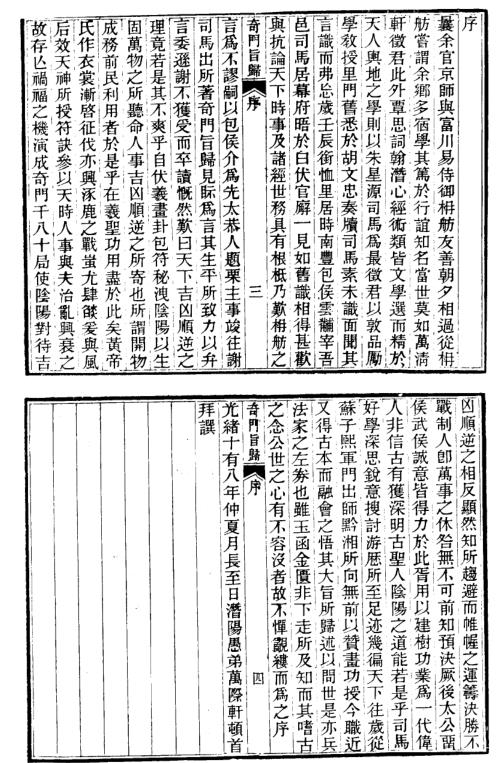 序
曩余官京師與富川易侍御栴舫友善朝夕相過從栴
舫嘗謂余鄉多宿學其篤於行誼知名當世莫如萬清
軒徵君此外覃思詞翰潛心經術類皆文學選而精於
天人輿地之學則以朱星源司馬為最徵君以敦品勵
學教授里門舊悉於胡文忠奏牘司馬素未識面聞其
言識而弗忘歲壬辰銜恤里居時南豐包侯雲黼宰吾
邑司馬居幕府晤於白伏官廨一見如舊識相得甚歡
與抗論天下時事及諸經世務具有根柢乃歎栴舫之
奇門旨歸 序 三
言為不謬嗣以包侯介為先太恭人題栗主事竣往謝
司馬出所著奇門旨歸見眎為言其生平所致力以弁
言委遜謝不獲受而卒讀慨然歎曰天下吉凶順逆之
理竟若是其不爽乎自伏羲畫卦包符秘洩陰陽以生
固萬物之所聽命人事吉凶順逆之所寄也所謂開物
成務前民利用者於是乎在羲聖功用盡於此矣黃帝
氏作衣裳漸啓征伐亦興涿鹿之戰蚩尤肆餤爰與風
后效天神所授符訣參以天時人事與夫治亂興衰之
故存亾禍福之機演成奇門千八十局使陰陽對待吉
凶順逆之相反顯然知所趨避而帷幄之運籌決勝不
戰制人卽萬事之休咎無不可前知預決厥後太公畱
侯武侯誠意皆得力於此胥用以建樹功業為一代偉
人非信古有獲深明古聖人陰陽之道能若是乎司馬
好學深思銳意搜討游歷所至足迹幾徧天下往歲從
蘇子熙軍門出師黔湘所向無前以贊畫功授今職近
又得古本而融會之悟其大旨所歸述以問世是亦兵
法家之左券也雖玉函金匱非下走所及知而其嗜古
之念公世之心有不容沒者故不憚覼縷而為之序
奇門旨歸 序 四
光緒十有八年仲夏月長至日潛陽愚弟萬際軒頓首
拜譔